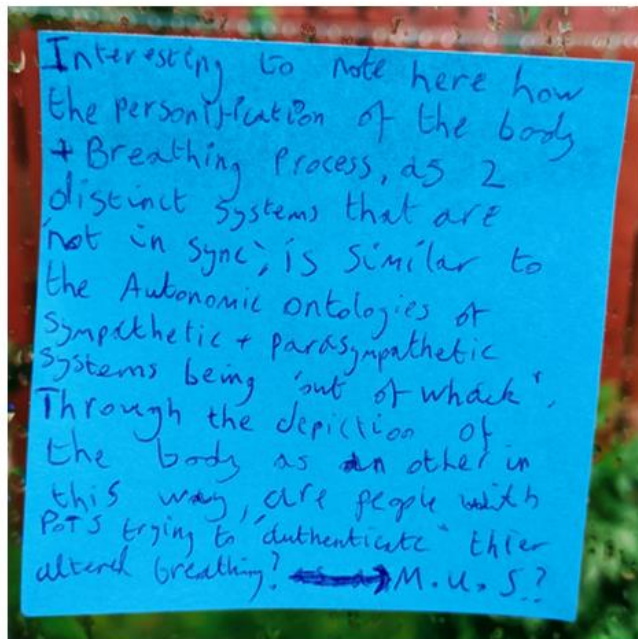 Interesting to note here how
the personification of the body
+ Breathing Process, as 2
distinct systems that are
'not in sync', is similar to
the Autonomic ontologies of
Sympathetic + parasympathetic
systems being 'out of whack'.
Through the depiction of
the body as an other in
this way, are people with
PoTS trying to "authenticate" thier
altered breathing? M.U.S?